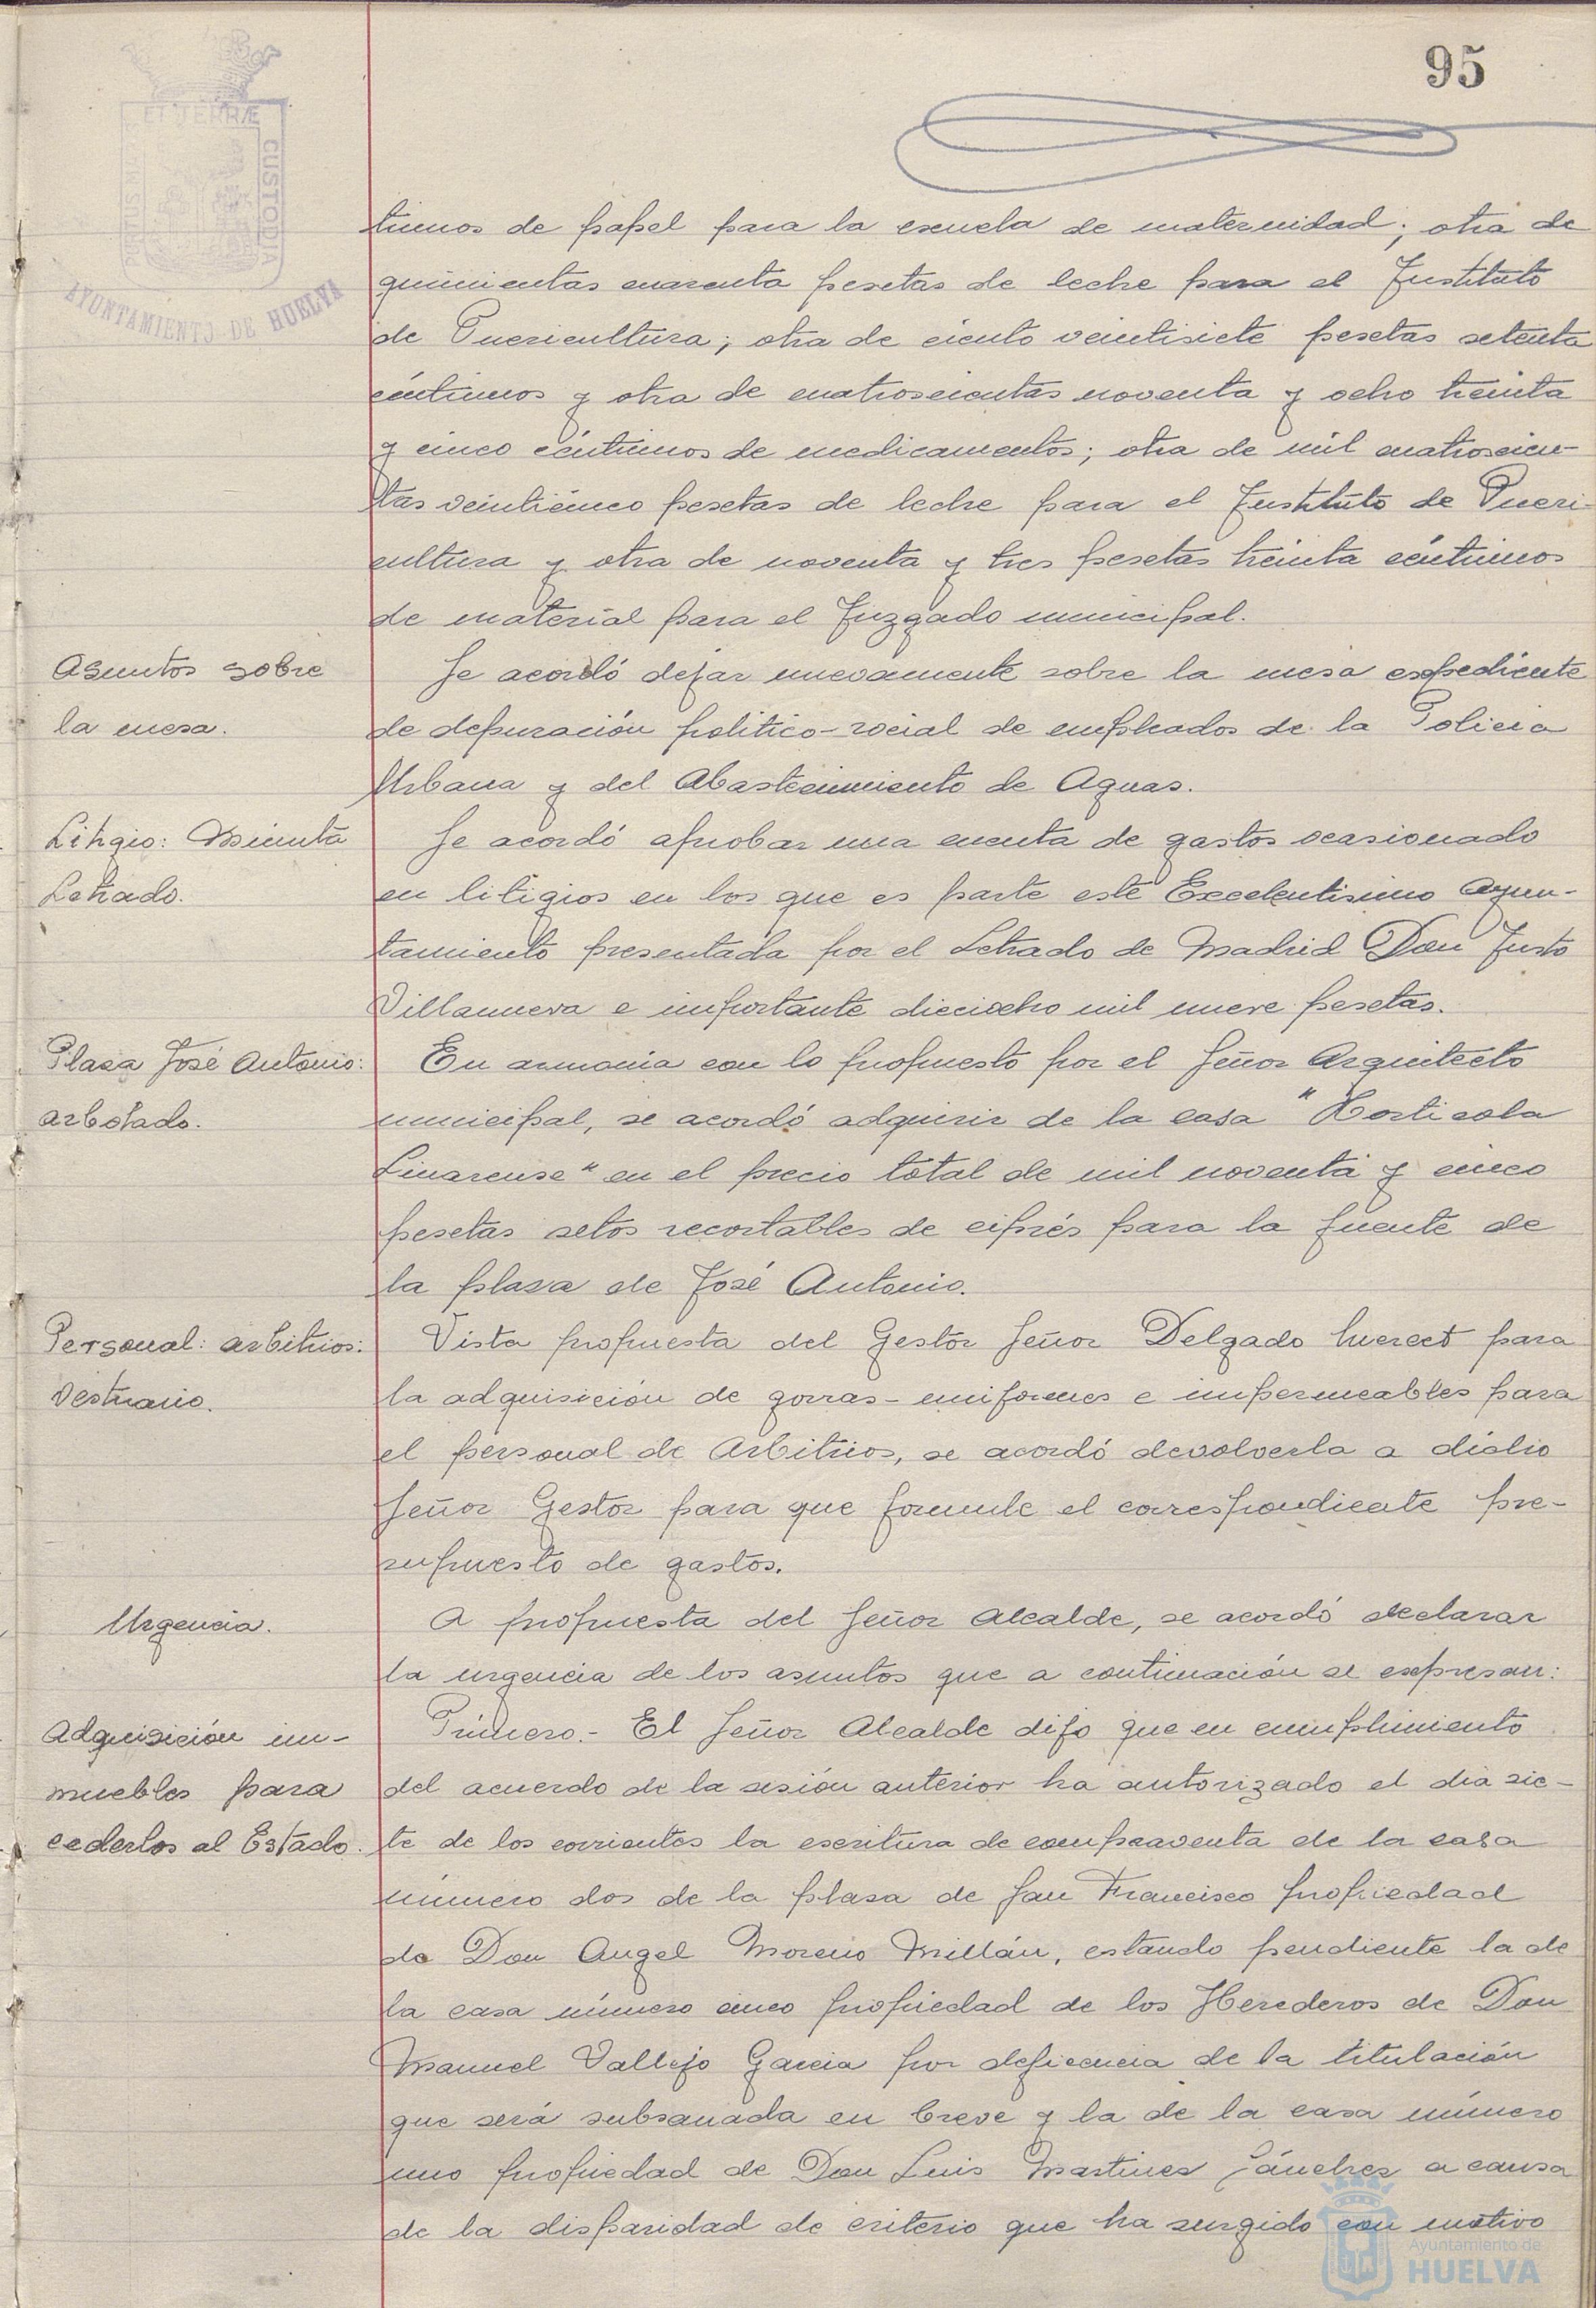 95
ET TERRÆ
CUSTODIA
AYUNTAMIENTO DE HUELVA
timos de papel para la escuela de maternidad; otra de
quinientas cuarenta pesetas de leche para el Instituto
de Puericultura; otra de ciento veintisiete pesetas setenta
céntimos y otra de cuatrocientas noventa y ocho treinta
y cinco céntimos de medicamentos; otra de mil cuatrocien-
tas veinticinco pesetas de leche para el Instituto de Pueri-
cultura y otra de noventa y tres pesetas treinta céntimos
de material para el Juzgado municipal.
Asuntos sobre
la mesa.
Se acordó dejar nuevamente sobre la mesa expediente
de depuración politico-social de empleados de la Policia
Urbana y del Abastecimiento de Aguas.
Litigio: Minuta
Letrado.
Se acordó aprobar una cuenta de gastos ocasionado
en litigios en los que es parte este Excelentisimo Ayun-
tamiento presentada por el Letrado de Madrid Don Justo
Villanueva e importante dieciocho mil nueve pesetas.
Plaza José Antonio:
arbolado.
En armonia con lo propuesto por el Señor Arquitecto
municipal, se acordó adquirir de la casa "Horticola
Linarense" en el precio total de mil noventa y cinco
pesetas setos recortables de ciprés para la fuente de
la plaza de José Antonio.
Personal: arbitrios:
Vestuario.
Vista propuesta del Gestor Señor Delgado para
la adquisición de gorras-uniformes e impermeables para
el personal de Arbitrios, se acordó devolverla a dicho
Señor Gestor para que formule el correspondiente pre-
supuesto de gastos.
Urgencia.
A propuesta del Señor Alcalde, se acordó declarar
la urgencia de los asuntos que a continuación se expresan:
Adquisición in-
muebles para
cederlos al Estado.
Primero.- El Señor Alcalde dijo que en cumplimiento
del acuerdo de la sesión anterior ha autorizado el dia sie-
te de los corrientes la escritura de compraventa de la casa
número dos de la plaza de San Francisco propiedad
de Don Angel Moreno Millán, estando pendiente la de
la casa número cinco propiedad de los Herederos de Don
Manuel Vallejo Garcia por deficiencia de la titulación
que será subsanada en breve y la de la casa número
uno propiedad de Don Luis Martinez Sánchez a causa
de la disparidad de criterio que ha surgido con motivo
Ayuntamiento de
HUELVA